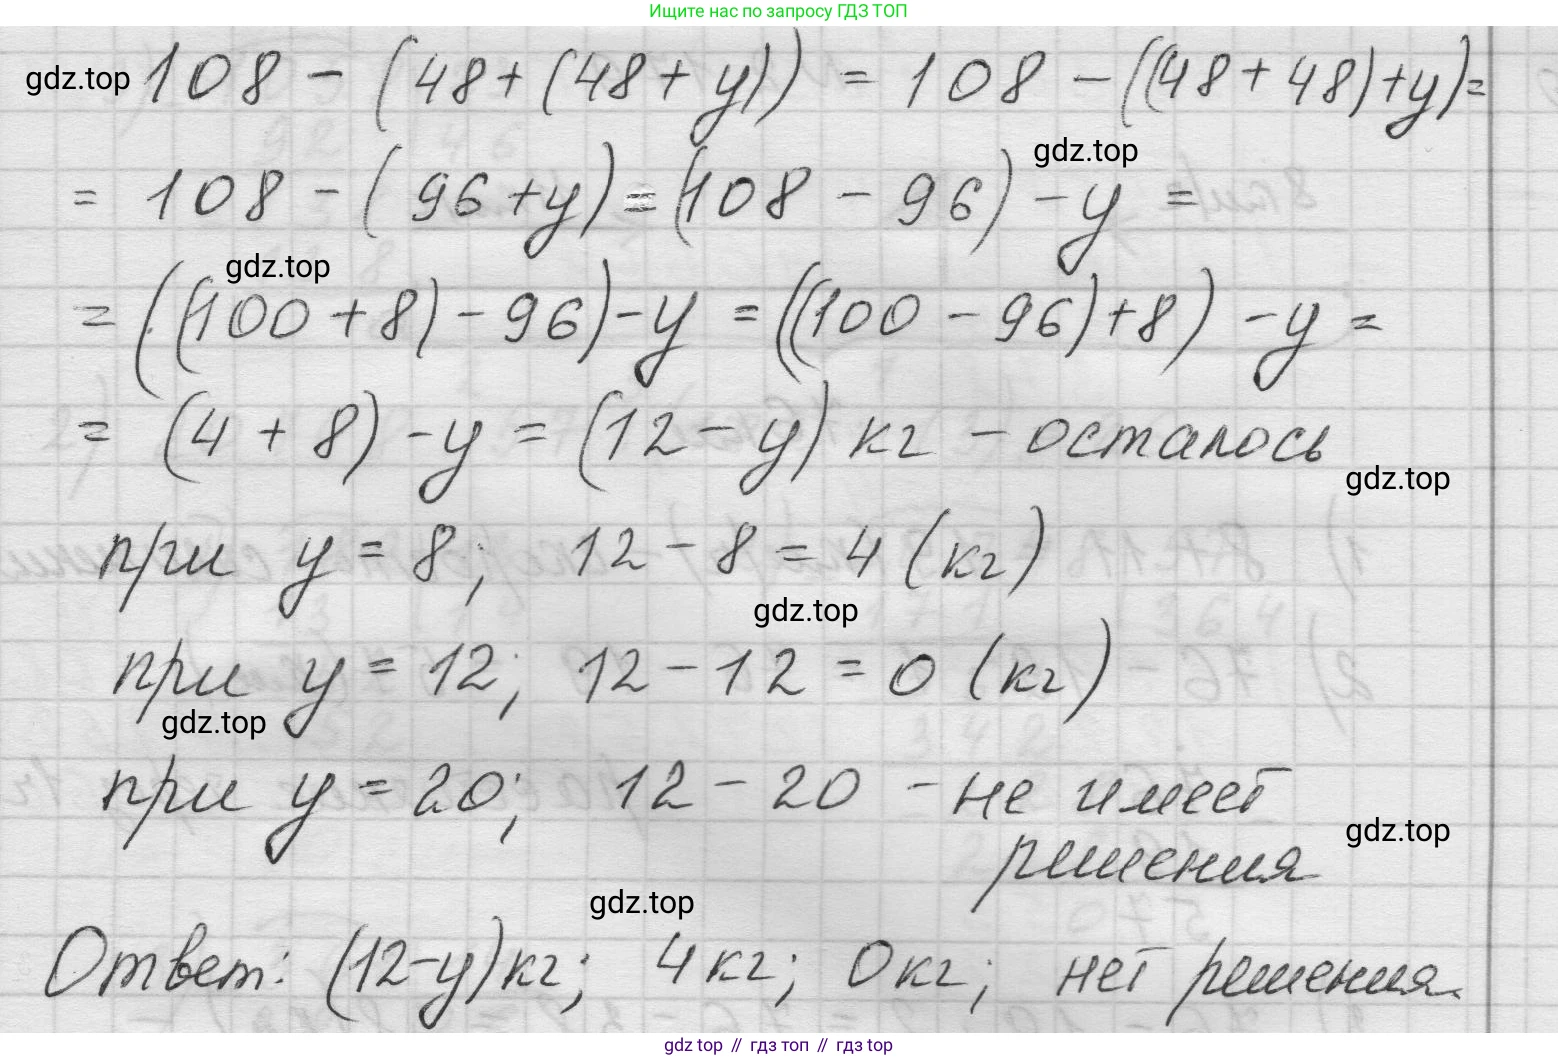 Ищите нас по запросу ГДЗ ТОП
gdz.top 108 - (48 + (48 + y)) = 108 - ((48 + 48) + y) =
gdz.top
= 108 - (96 + y) = (108 - 96) - y =
gdz.top
= ((100 + 8) - 96) - y = ((100 - 96) + 8) - y =
= (4 + 8) - y = (12 - y) кг - осталось
gdz.top
при y = 8; 12 - 8 = 4 (кг)
gdz.top
при y = 12; 12 - 12 = 0 (кг)
gdz.top
при y = 20; 12 - 20 - не имеет
решения
gdz.top
gdz.top
Ответ: (12-y)кг; 4кг; 0кг; нет решения.
gdz.top // гдз топ // гдз top